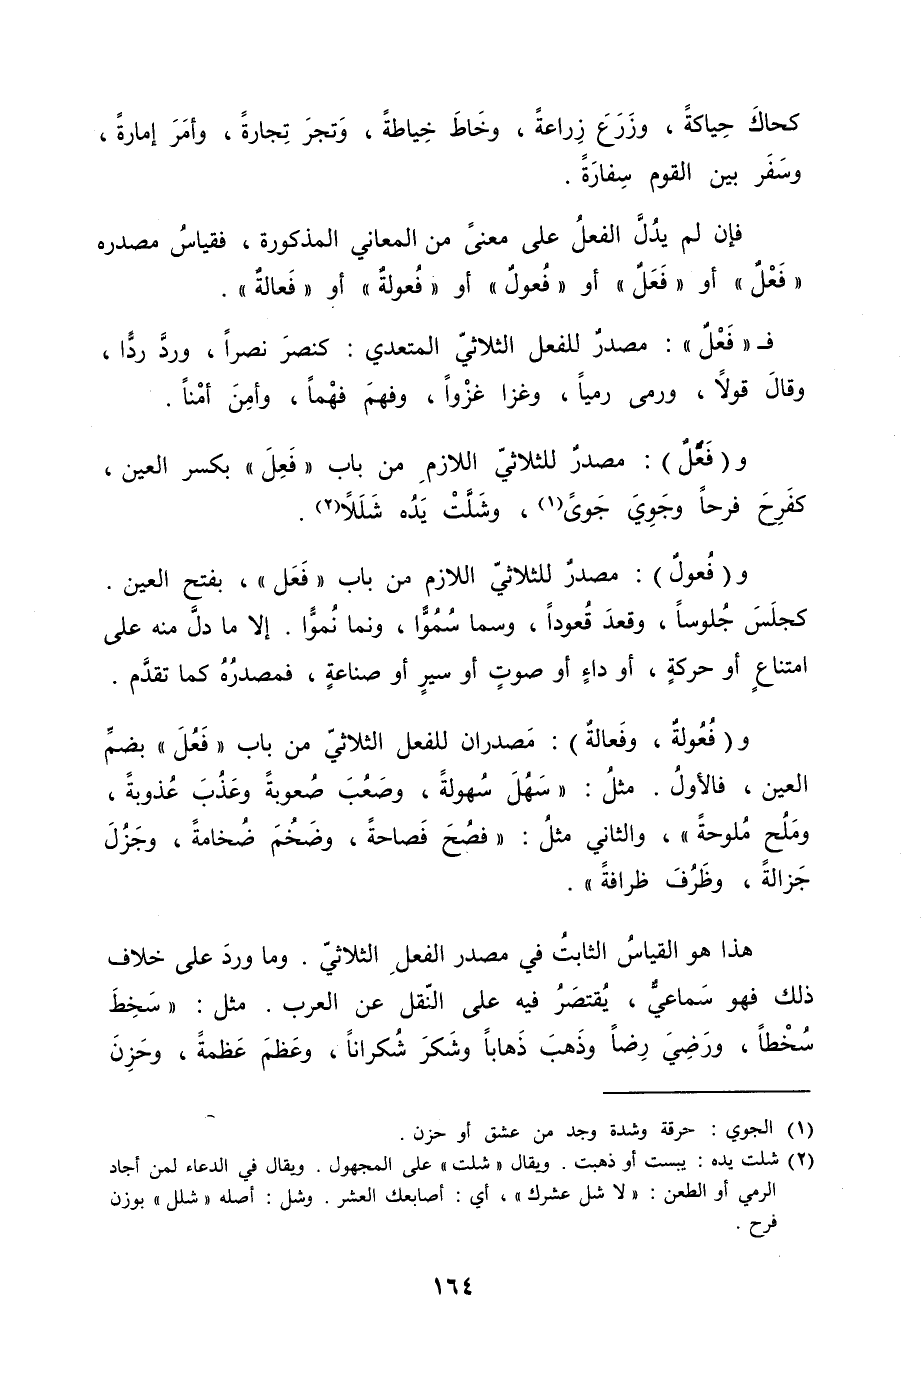 كحاكَ حِياكةً ، وزَرَعَ زِراعةً ، وخَاطَ خِياطةً ، وَتجرَ تِجارةً ، وأمَرَ إمارةً ،
وسَفَر بين القوم سِفارَةً .
فإن لم يدُلَّ الفعلُ على معنىً من المعاني المذكورة ، فقياسُ مصدره
« فَعْلٌ » أو « فَعَلٌ » أو « فُعولٌ » أو « فُعولةٌ » أو « فَعالةٌ » .
فـ « فَعْلٌ » : مصدرٌ للفعل الثلاثيّ المتعدي : كنصرَ نصراً ، وردَّ ردًّا ،
وقالَ قولًا ، ورمى رمياً ، وغزا غزْواً ، وفهمَ فهْماً ، وأمِنَ أمْناً .
و ( فَعَلٌ ) : مصدرٌ للثلاثيّ اللازمِ من باب « فَعِلَ » بكسر العين ،
كفَرِحَ فرحاً وجَوِيَ جَوىً(١) ، وشَلَّتْ يَدُه شَلَلًا(٢) .
و ( فُعولٌ ) : مصدرٌ للثلاثيّ اللازم من باب « فَعَل » ، بفتح العين .
كجلَسَ جُلوساً ، وقعدَ قُعوداً ، وسما سُمُوًّا ، ونما نُموًّا . إلا ما دلَّ منه على
امتناعٍ أو حركةٍ ، أو داءٍ أو صوتٍ أو سيرٍ أو صناعةٍ ، فمصدرُهُ كما تقدَّم .
و ( فُعُولةٌ ، وفَعالةٌ ) : مَصدران للفعل الثلاثيّ من باب « فَعُلَ » بضمِّ
العين ، فالأولُ . مثلُ : « سَهُلَ سُهولةً ، وصَعُبَ صُعوبةً وعَذُبَ عُذوبةً ،
ومَلُح مُلوحةً » ، والثاني مثلُ : « فصُحَ فَصاحةً ، وضَخُمَ ضُخامةً ، وجَزُلَ
جَزالةً ، وظَرُفَ ظرافةً » .
هذا هو القياسُ الثابتُ في مصدر الفعلِ الثلاثيّ . وما وردَ على خلاف
ذلك فهو سَماعيٌّ ، يُقتصَرُ فيه على النّقل عن العرب . مثل : « سَخِطَ
سُخْطاً ، ورَضِيَ رِضاً وذَهبَ ذَهاباً وشكَرَ شُكراناً ، وعَظمَ عَظمةً ، وحَزِنَ
(١) الجوي : حرقة وشدة وجد من عشق أو حزن .
(٢) شلت يده : يبست أو ذهبت . ويقال « شلت » على المجهول . ويقال في الدعاء لمن أجاد
الرمي أو الطعن : « لا شل عشرك » ، أي : أصابعك العشر . وشل : أصله « شلل » بوزن
فرح .
١٦٤